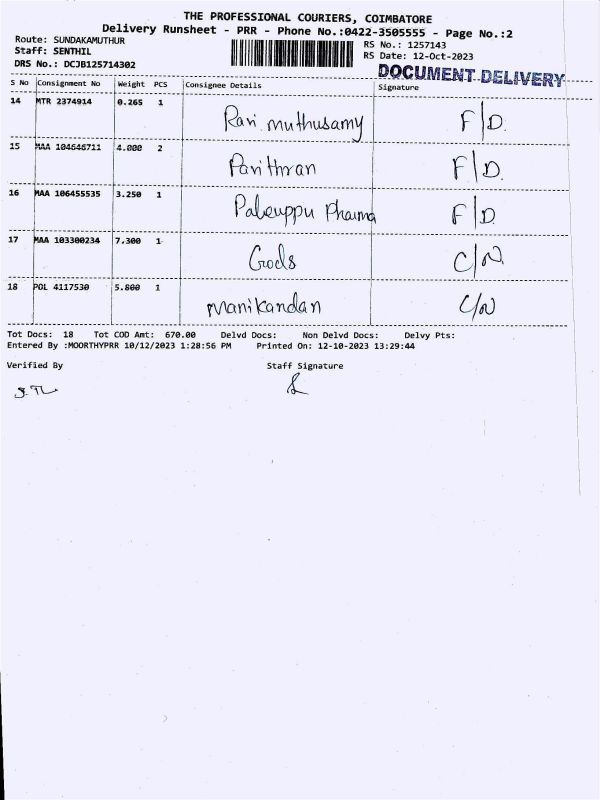 THE PROFESSIONAL COURIERS, COIMBATORE
Delivery Runsheet - PRR - Phone No.:0422-3505555 - Page No.:2
Route: SUNDAKAMUTHUR
Staff: SENTHIL
DRS No.: DCJB125714302
RS No.: 1257143
RS Date: 12-Oct-2023
DOCUMENT DELIVERY
S No Consignment No Weight PCS Consignee Details Signature
14 MTR 2374914 0.265 1 Ravi muthusamy F/D.
15 MAA 104646711 4.000 2 Pavithran F/D.
16 MAA 106455535 3.250 1 Pharma F/D.
17 MAA 103300234 7.300 1 C/N.
18 POL 4117530 5.800 1 manikandan C/N
Tot Docs: 18 Tot COD Amt: 670.00 Delvd Docs: Non Delvd Docs: Delvy Pts:
Entered By :MOORTHYPRR 10/12/2023 1:28:56 PM Printed On: 12-10-2023 13:29:44
Verified By Staff Signature